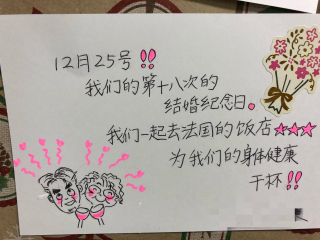 12月25号!!
我们的第十八次的
结婚纪念日。
我们一起去法国的饭店★★★
为我们的身体健康
干杯!!